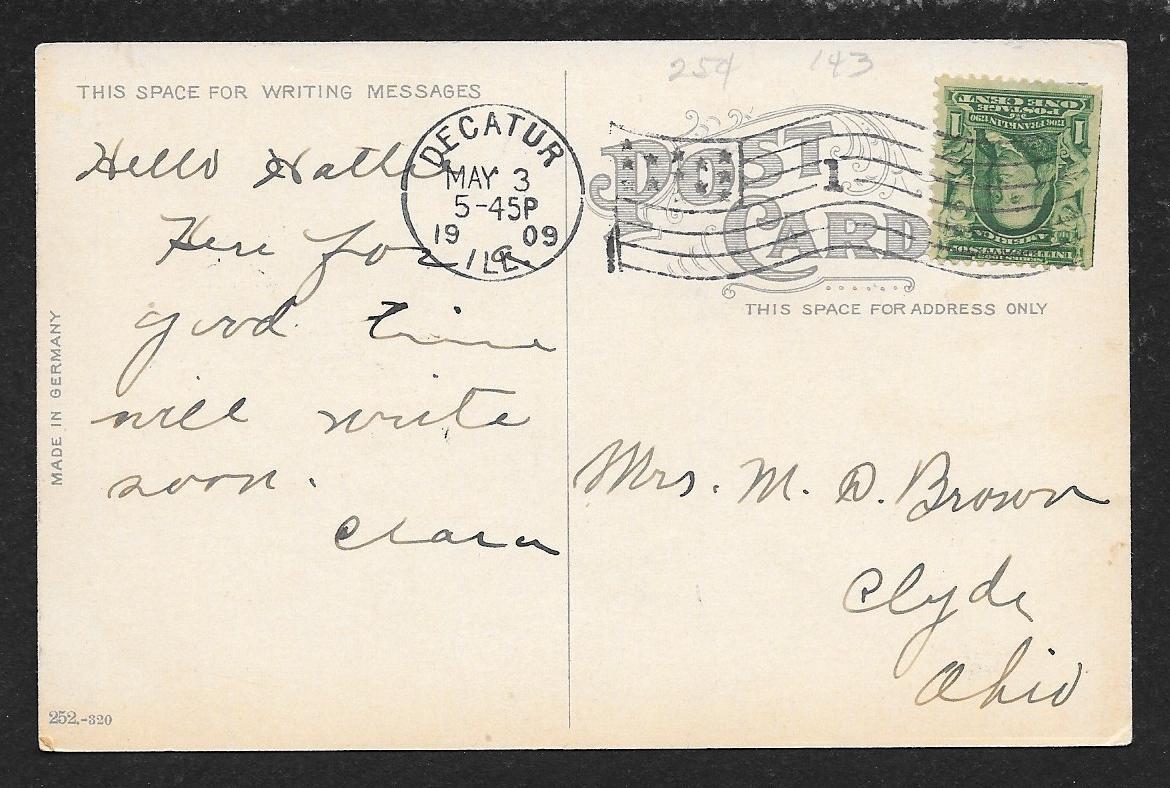 254 143
THIS SPACE FOR WRITING MESSAGES
DECATUR
MAY 3
5-45P
19 09
ILL.
POST CARD
1
THIS SPACE FOR ADDRESS ONLY
1 POSTAGE 1
ONE CENT
Hello
Here for
good time
will write
soon.
Clara
Mrs. M. D. Brown
Clyde
Ohio
MADE IN GERMANY
252.-320